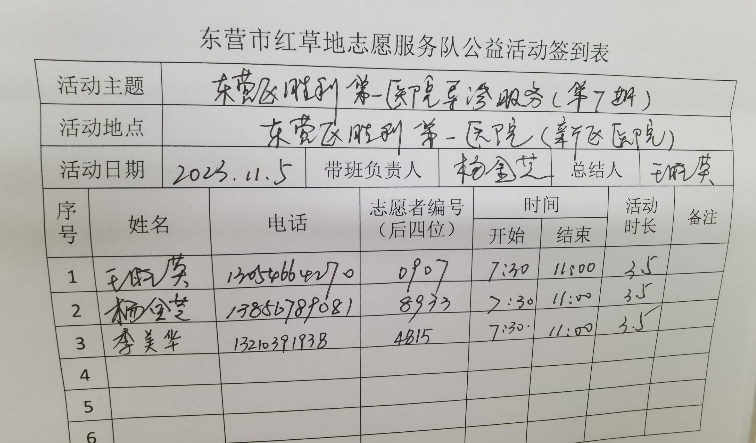 东营市红草地志愿服务队公益活动签到表
活动主题 东营区胜利第一医院导诊服务(第7期)
活动地点 东营区胜利第一医院(新区医院)
活动日期 2023.11.5 带班负责人 杨金芝 总结人 王晓英
序号 姓名 电话 志愿者编号(后四位) 时间 开始 结束 活动时长 备注
1 王晓英 13054664270 0907 7:30 11:00 3.5
2 杨金芝 13856789081 8933 7:30 11:00 3.5
3 李美华 13210391938 4815 7:30 11:00 3.5
4
5
6